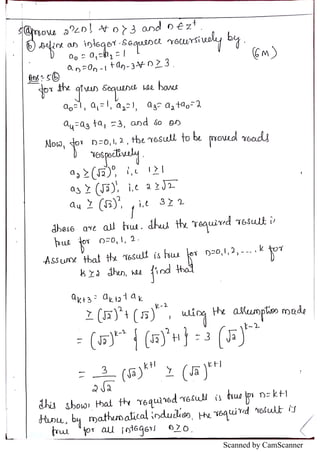 5@ prove 2ⁿ<n! ∀ n>3 and n∈z⁺.
ⓑ Define an integer-sequence recursively by.
a₀ = a₁ = a₂ = 1 (6M)
aₙ = aₙ₋₁ + aₙ₋₃ ∀ n≥3.
Ans: 5ⓑ
for the given sequence we have
a₀=1, a₁=1, a₂=1, a₃= a₂+a₀=2
a₄=a₃+a₁ =3, and so on
Now, for n=0,1,2, the result to be proved reads
respectively.
a₂ ≥ (√2)⁰, i.e 1≥1
a₃ ≥ (√2)¹, i.e 2≥√2
a₄ ≥ (√2)², i.e 3≥2
these are all true. thus the required result is
true for n=0,1,2.
Assume that the result is true for n=0,1,2,.... k for
k≥2 then, we find that
aₖ₊₃ = aₖ₊₂ + aₖ
≥ (√2)ᵏ + (√2)ᵏ⁻², using the assumption made
= (√2)ᵏ⁻² { (√2)² + 1 } = 3 (√2)ᵏ⁻²
= 3/2√2 (√2)ᵏ⁺¹ ≥ (√2)ᵏ⁺¹
this shows that the required result is true for n=k+1
Hence, by mathematical induction, the required result is
true for all integers n≥0.
Scanned by CamScanner